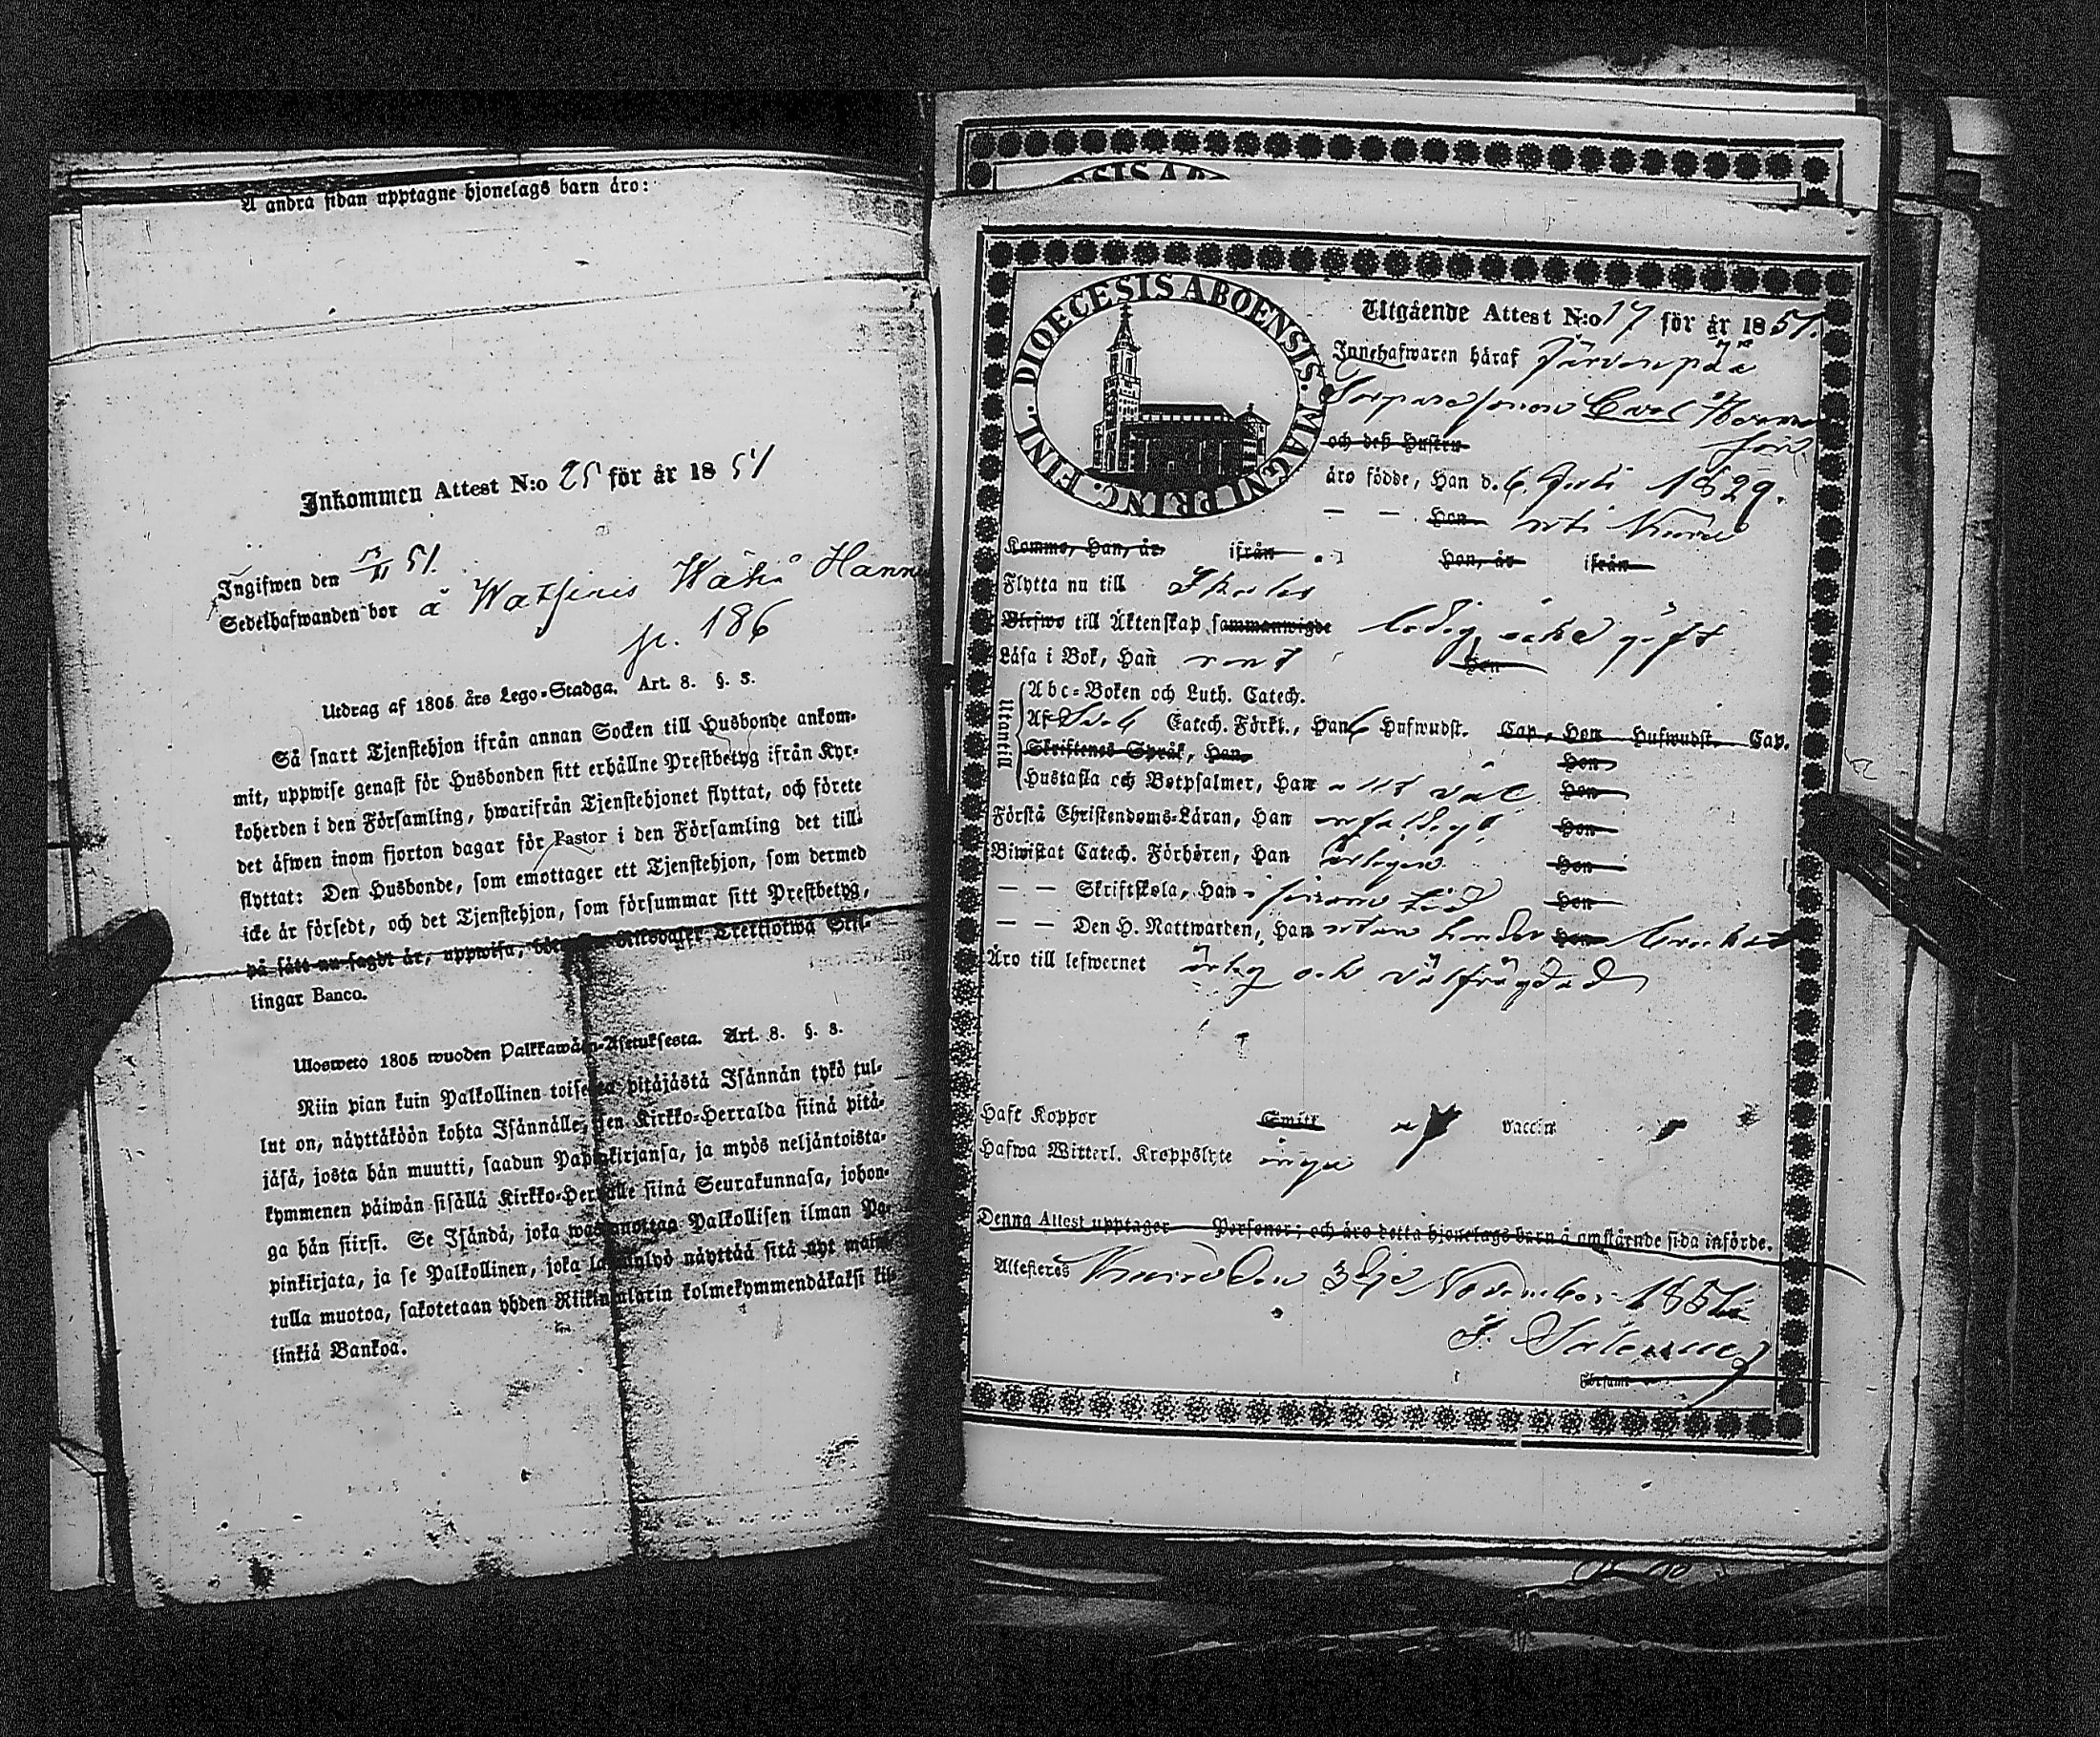 A andra sidan upptagne hjonelags barn äro:
Inkommen Attest N:o 25 för år 1851
Ingifwen den 51.
Sedelhafwanden bor å Wähä Hann
p. 186
Utdrag af 1805 års Lego-Stadga. Art. 8. §. 8.
Så snart Tjenstehjon ifrån annan Socken till Husbonde ankom-
mit, uppwise genast för Husbonden sitt erhållne Prestbetyg ifrån Kyr-
koherden i den Församling, hwarifrån Tjenstehjonet flyttat, och förete
det äfwen inom fjorton dagar för Pastor i den Församling det till-
flyttat: Den Husbonde, som emottager ett Tjenstehjon, som dermed
icke är försedt, och det Tjenstehjon, som försummar sitt Prestbetyg,
på sätt nu sagdt är, uppwisa, Riksdaler Trettiotwå Skil-
lingar Banco.
Ulosweto 1805 wuoden Palkkawäen-Asetuksesta. Art. 8. §. 8.
Niin pian kuin Palkollinen toisesta pitäjästä Isännän tykö tul-
lut on, näyttäköön kohta Isännälle, sen Kirkko-Herralda siinä pitä-
jäsä, josta hän muutti, saadun Papinkirjansa, ja myös neljäntoista-
kymmenen päiwän sisällä Kirkko-Herralle siinä Seurakunnasa, johon-
ga hän siirsi. Se Isändä, joka wastanottaa Palkollisen ilman Pa-
pinkirjata, ja se Palkollinen, joka laiminlyö näyttää sitä nyt maini-
tulla muotoa, sakotetaan yhden Riikintalarin kolmekymmendäkaksi kil-
linkiä Bankoa.
DIOECESIS ABOENSIS. MAGNI PRINC. FINL.
Utgående Attest N:o 17 för år 1851.
Innehafwaren häraf Järvenpää
Carl Herm
och deß Hustru son
äro födde, Han d. 6. Juli 1829.
— — Hon uti
Kommo, Han, år ifrån Hon, år ifrån
Flytta nu till Ikalis
Blefwo till Äktenskap sammanwigde ledig, icke gift
Läsa i Bok, Han rent Hon
Utantill
Abc-Boken och Luth. Catech.
Af Catech. Förkl., Han 6 Hufwudst. Cap., Hon Hufwudst. Cap.
Skriftenes Språk, Han Hon
Hustafla och Botpsalmer, Han väl Hon
Förstå Christendoms-Läran, Han Hon
Biwistat Catech. Förhören, Han årligen Hon
— — Skriftskola, Han i sinom tid Hon
— — Den H. Nattwarden, Han utan hinder Hon
Äro till lefwernet ärlig och välfrägdad
Haft Koppor Smitt vaccin
Hafwa Witterl. Kroppslyte inga
Denna Attest upptager Personer; och äro detta hjonelags barn å omstående sida införde.
Attesteras den 3dje November 1851